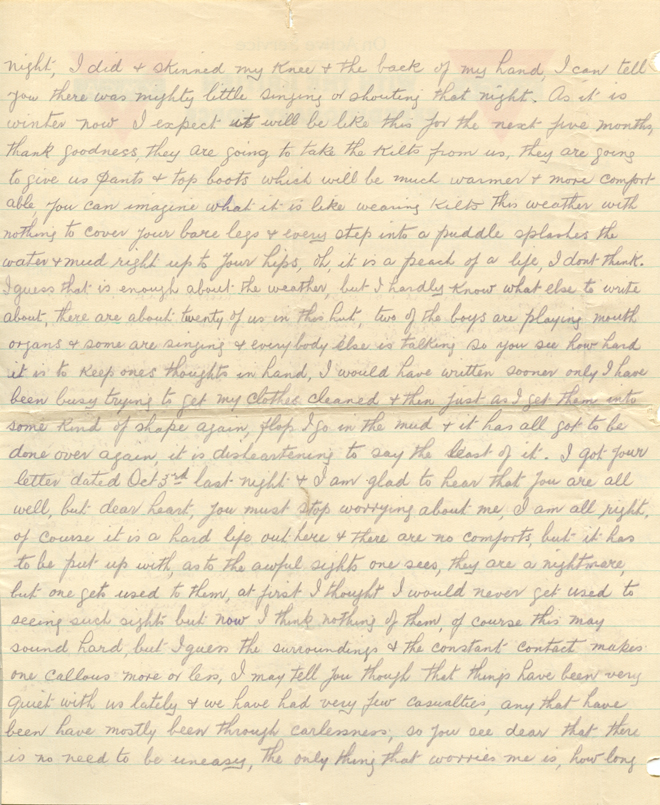 night, I did & skinned my Knee & the back of my hand, I can tell
you there was mighty little singing or shouting that night. As it is
winter now I expect it will be like this for the next five months,
thank goodness, they are going to take the Kilts from us, they are going
to give us pants & top boots which will be much warmer & more comfort
able, you can imagine what it is like wearing Kilts this weather with
nothing to cover your bare legs & every step into a puddle splashes the
water & mud right up to your hips, Oh, it is a peach of a life, I dont think.
I guess that is enough about the weather, but I hardly Know what else to write
about, there are about twenty of us in this hut, two of the boys are playing mouth
organs & some are singing & everybody else is talking so you see how hard
it is to Keep ones thoughts in hand, I would have written sooner only I have
been busy trying to get my clothes cleaned & then just as I get them into
some Kind of shape again, flop I go in the mud & it has all got to be
done over again, it is disheartening to say the least of it. I got your
letter dated Oct 3rd last night & I am glad to hear that you are all
well, but dear heart, you must stop worrying about me, I am all right,
of course it is a hard life out here & there are no comforts, but it has
to be put up with, as to the awful sights one sees, they are a nightmare,
but one gets used to them, at first I thought I would never get used to
seeing such sights but now I think nothing of them, of course this may
sound hard, but I guess the surroundings & the constant contact makes
one callous more or less, I may tell you though that things have been very
quiet with us lately & we have had very few casualties, any that have
been have mostly been through carlessness, so you see dear that there
is no need to be uneasy, the only thing that worries me is, how long